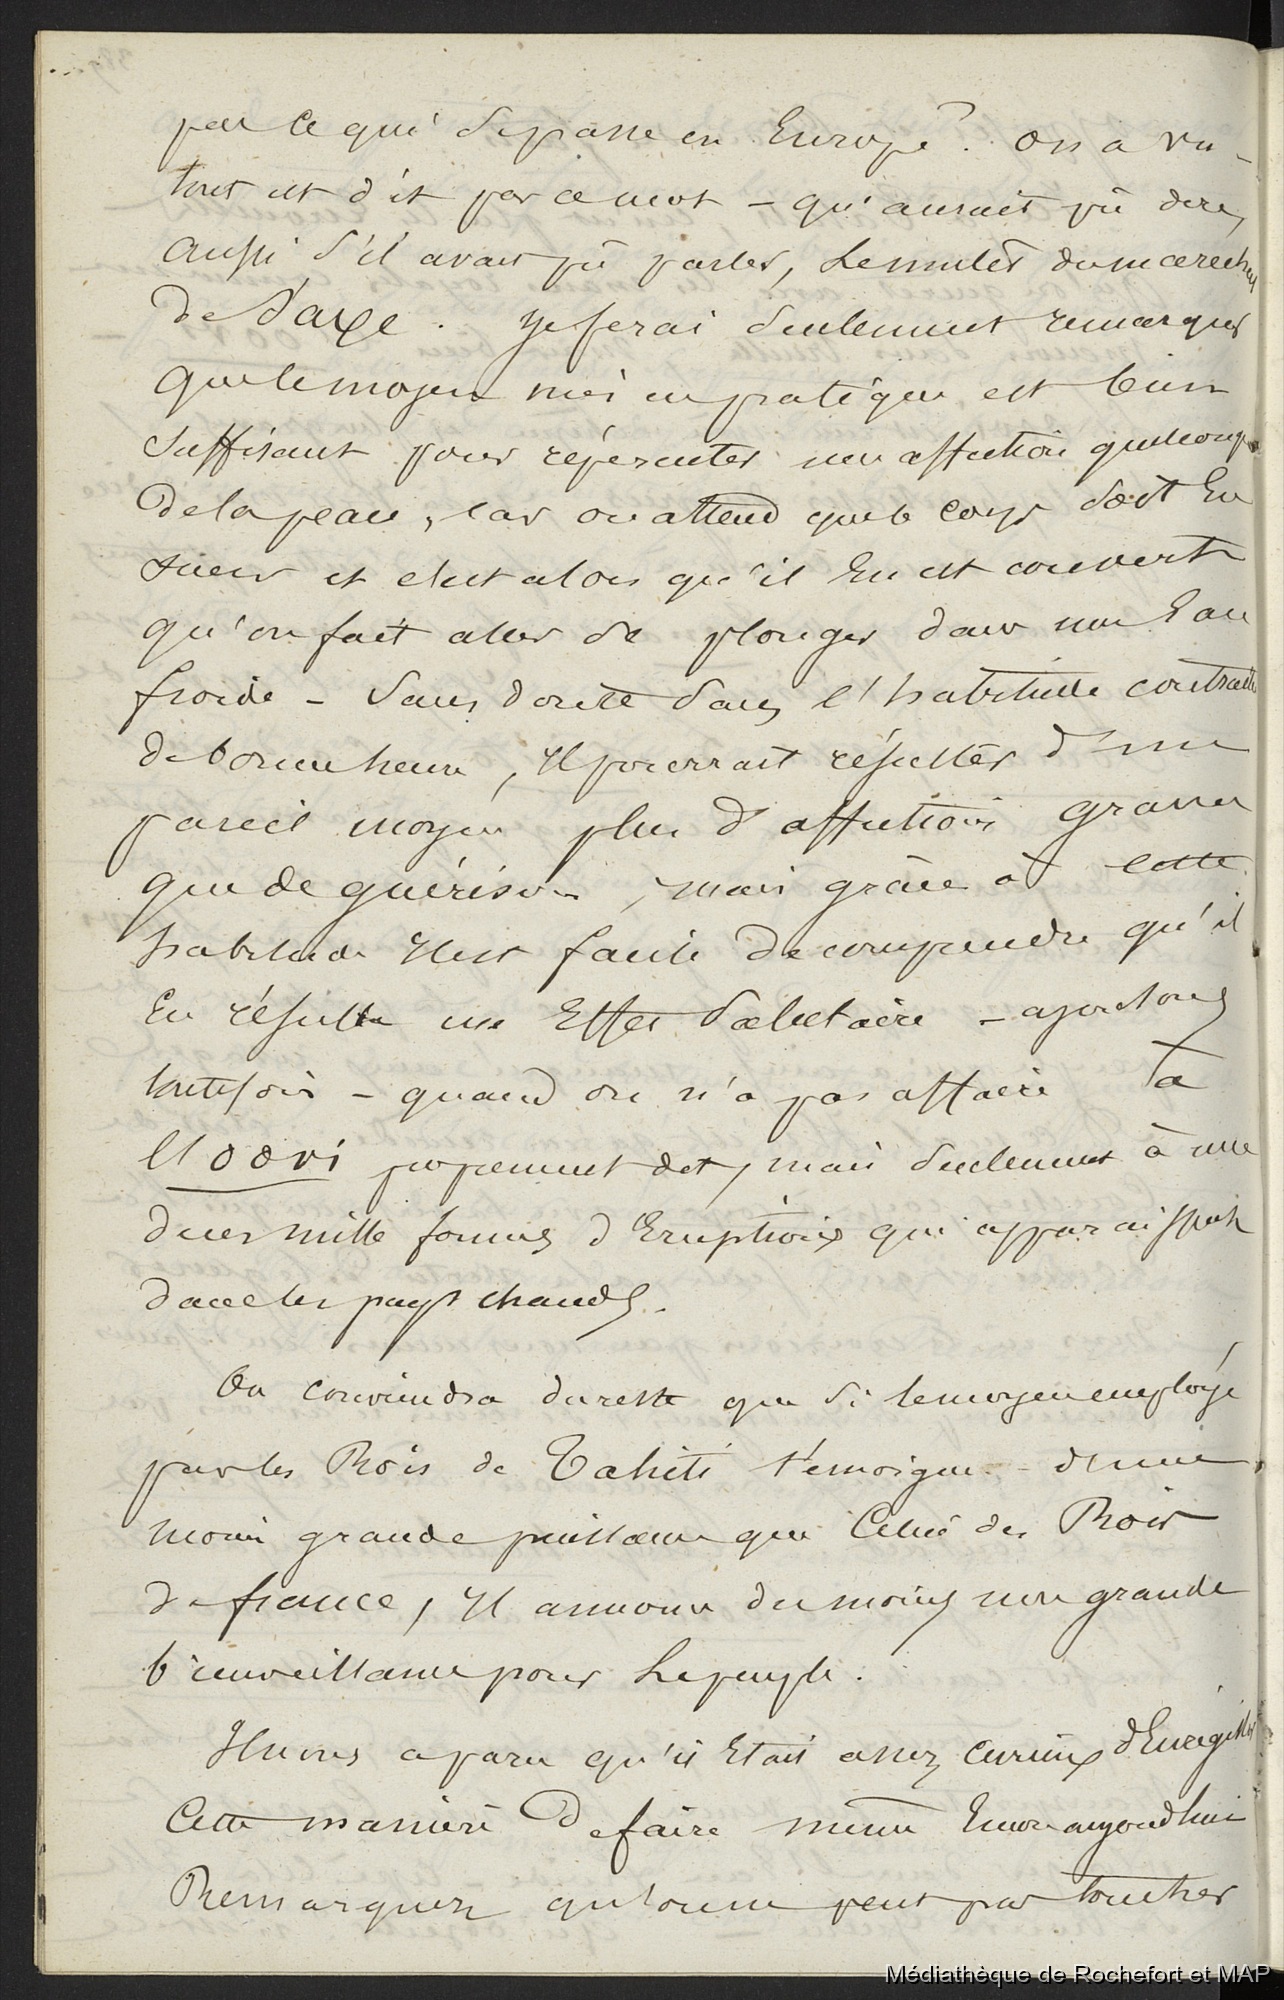 par ce qui se passe en Europe ? on a vu -
tout est dit par ce mot - qu'aurait pû dire,
aussi s'il avait pû parler, le mulet du marechal
de Saxe. Je ferai seulement remarquer
que le moyen mis en pratique est bien
suffisant pour répercuter une affection quelconque
de la peau, car on attend que le corps soit En
sueur et c'est alors qu'il En est couvert
qu'on fait aller se plonger dans une Eau
froide - Sans doute sans l'habitude contractée
de bonne heure, Il pourrait résulter d'un
pareil moyen plus d'affections graves
que de guérison, mais grâce à cette
habitude Il est facile de comprendre qu'il
En résulte un Effet salutaire - ajoutons
toutefois - quand on n'a pas affaire à
l'oovi proprement dit, mais seulement à une
des mille formes d'Eruptions qui apparaissent
dans les pays chauds.
On conviendra du reste que si le moyen employé
par les Rois de Tahiti témoigne d'une
moins grande puissance que Celui des Rois
de france, Il annonce du moins une grande
bienveillance pour Le peuple.
Il nous a paru qu'il Etait assez curieux d'Enregistrer
Cette manière De faire même Encore aujourdhui
Remarquez qu'on ne peut pas toucher
Médiathèque de Rochefort et MAP